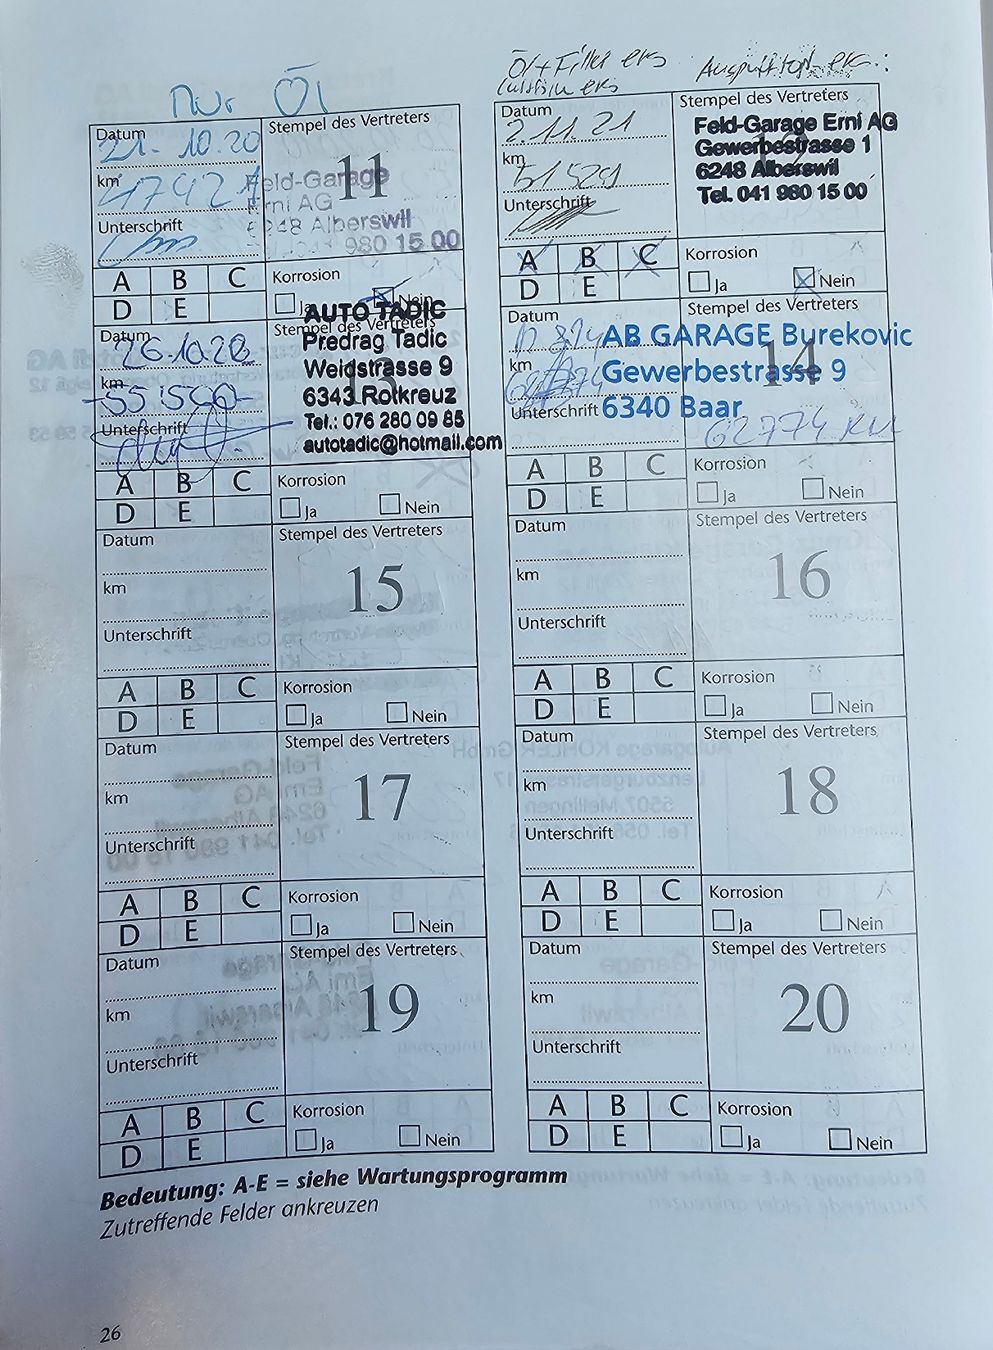 Nur Öl
Datum
21. 10. 20
Stempel des Vertreters
11
km
47921
Feld-Garage
Erni AG
6248 Alberswil
980 15 00
Unterschrift
A B C
D E
Korrosion
Ja Nein
Öl + Filter ers
ers
Auspufftopf ers.
Datum
2.11.21
Stempel des Vertreters
km
51529
Feld-Garage Erni AG
Gewerbestrasse 1
6248 Alberswil
Tel. 041 980 15 00
Unterschrift
A B C
D E
Korrosion
Ja Nein
Datum
26.10.22
Stempel des Vertreters
13
km
-55'500-
AUTO TADIC
Predrag Tadic
Weidstrasse 9
6343 Rotkreuz
Tel.: 076 280 09 85
autotadic@hotmail.com
Unterschrift
A B C
D E
Korrosion
Ja Nein
Datum
Stempel des Vertreters
14
km
AB GARAGE Burekovic
Gewerbestrasse 9
6340 Baar
Unterschrift
62774 km
A B C
D E
Korrosion
Ja Nein
Datum
Stempel des Vertreters
km
15
Unterschrift
A B C
D E
Korrosion
Ja Nein
Datum
Stempel des Vertreters
km
16
Unterschrift
A B C
D E
Korrosion
Ja Nein
Datum
Stempel des Vertreters
km
17
Unterschrift
A B C
D E
Korrosion
Ja Nein
Datum
Stempel des Vertreters
km
18
Unterschrift
A B C
D E
Korrosion
Ja Nein
Datum
Stempel des Vertreters
km
19
Unterschrift
A B C
D E
Korrosion
Ja Nein
Datum
Stempel des Vertreters
km
20
Unterschrift
A B C
D E
Korrosion
Ja Nein
Bedeutung: A-E = siehe Wartungsprogramm
Zutreffende Felder ankreuzen
26